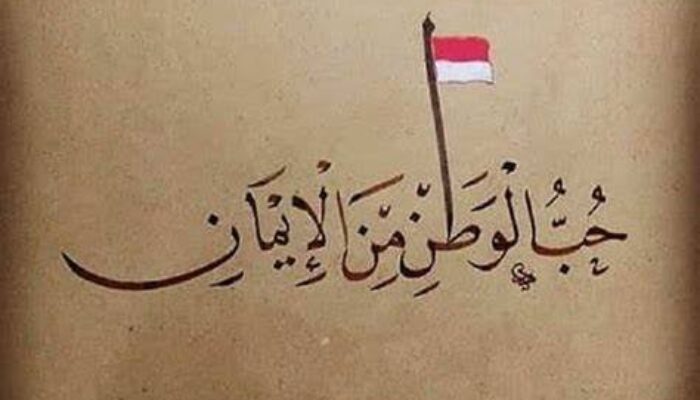 حُبُّ الْوَطَنِّ مِّنَ الْإِيْمَانِ